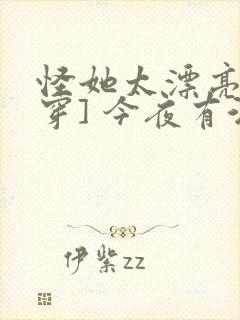 怪她太漂亮
穿] 今夜有
伊紫zz